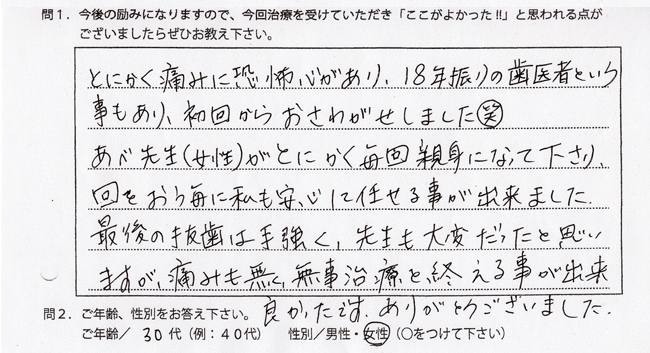 問1．今後の励みになりますので、今回治療を受けていただき「ここがよかった!!」と思われる点が
ございましたらぜひお教え下さい。
とにかく痛みに恐怖心があり、18年振りの歯医者という
事もあり、初回からおさわがせしました㊗笑
あべ先生(女性)がとにかく毎回親身になって下さり、
回をおう毎に私も安心して任せる事が出来ました.
最後の抜歯は手強く、先生も大変だったと思い
ますが、痛みも無く、無事治療を終える事が出来
良かったです. ありがとうございました.
問2．ご年齢、性別をお答え下さい。
ご年齢／ 30 代（例：40代） 性別／男性・女性（○をつけて下さい）